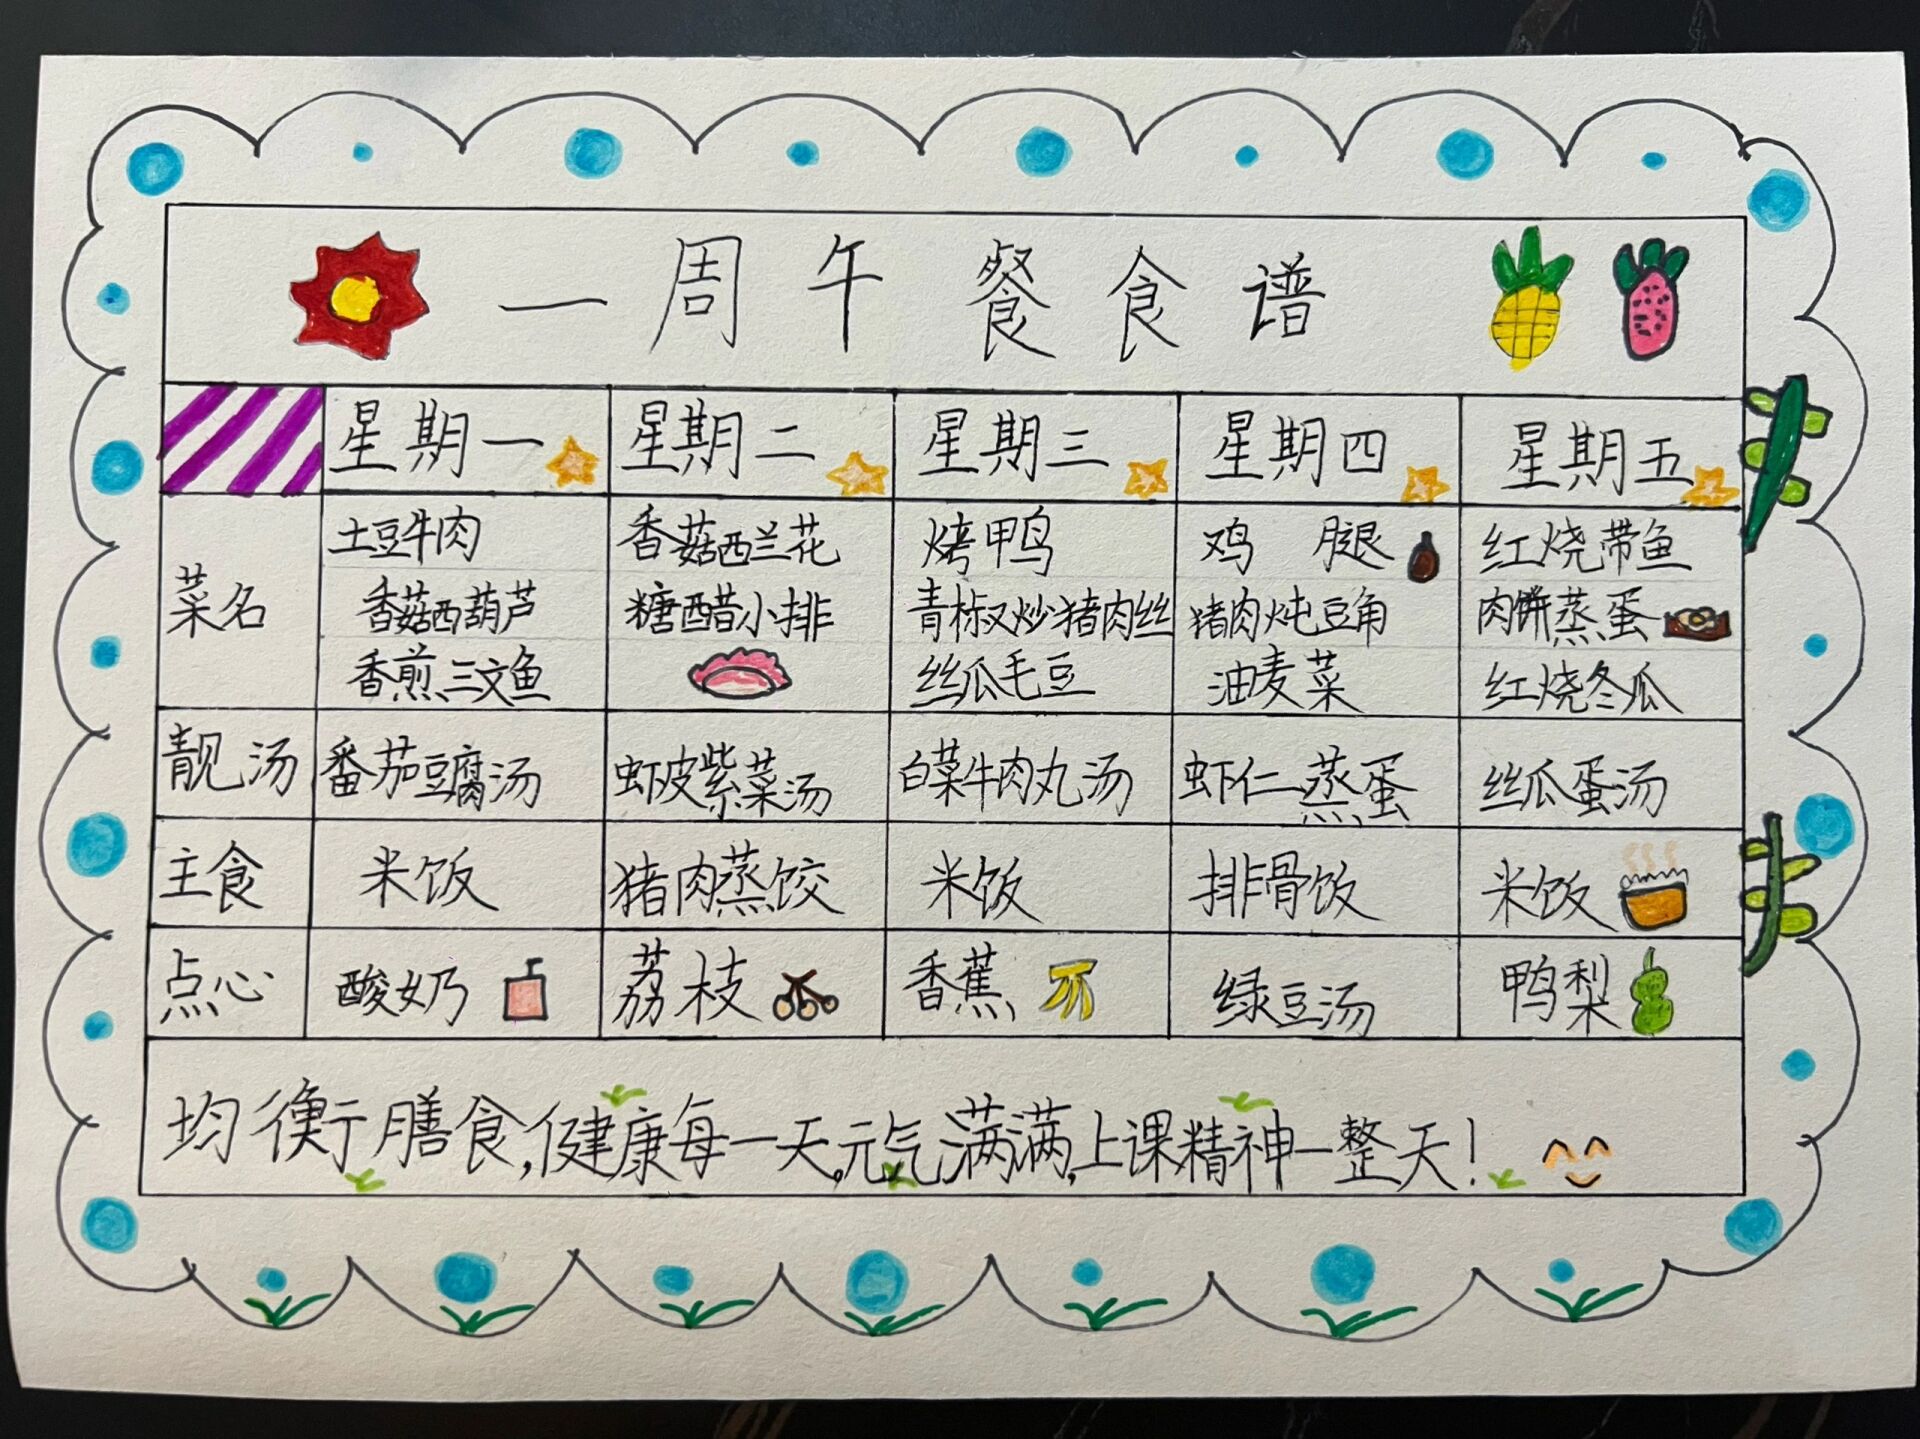 一周午餐食谱
星期一 星期二 星期三 星期四 星期五
菜名
土豆牛肉 香菇西兰花 烤鸭 鸡腿 红烧带鱼
香菇西葫芦 糖醋小排 青椒炒猪肉丝 猪肉炖豆角 肉饼蒸蛋
香煎三文鱼 丝瓜毛豆 油麦菜 红烧冬瓜
靓汤 番茄豆腐汤 虾皮紫菜汤 白菜牛肉丸汤 虾仁蒸蛋 丝瓜蛋汤
主食 米饭 猪肉蒸饺 米饭 排骨饭 米饭
点心 酸奶 荔枝 香蕉 绿豆汤 鸭梨
均衡膳食,健康每一天。元气满满,上课精神一整天!